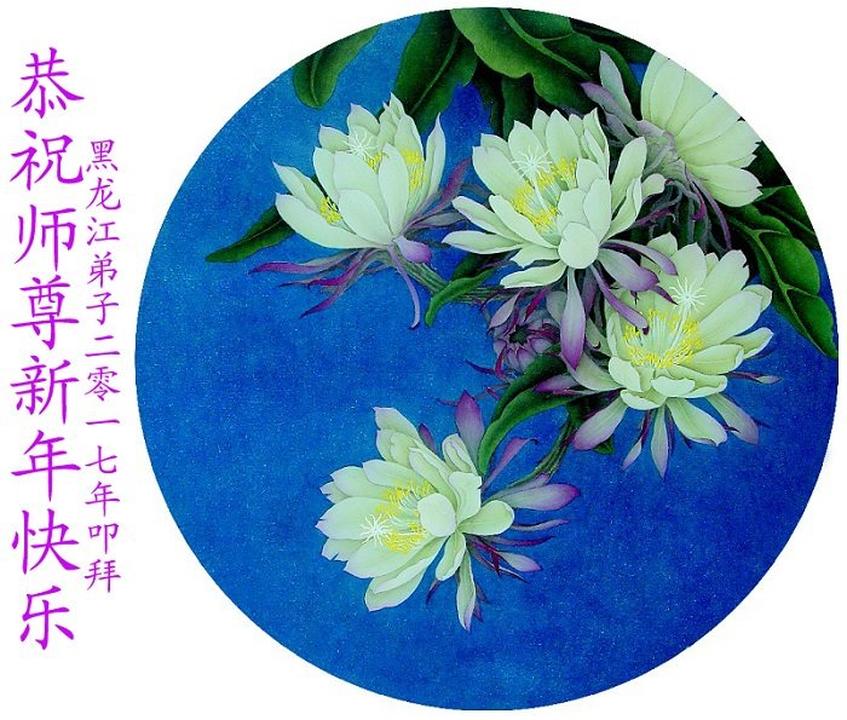 恭祝师尊新年快乐
黑龙江弟子二零一七年叩拜